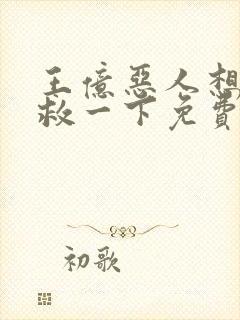 王億惡人想
救一下免費
初歌